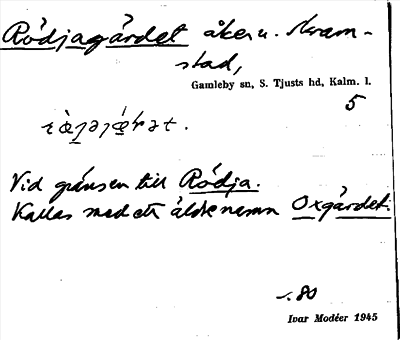 Rödjagärdet åker u. Skram-
stad,
Gamleby sn, S. Tjusts hd, Kalm. l.
5
Vid gränsen till Rödja.
Kallas med ett äldre namn Oxgärdet.
80
Ivar Modéer 1945